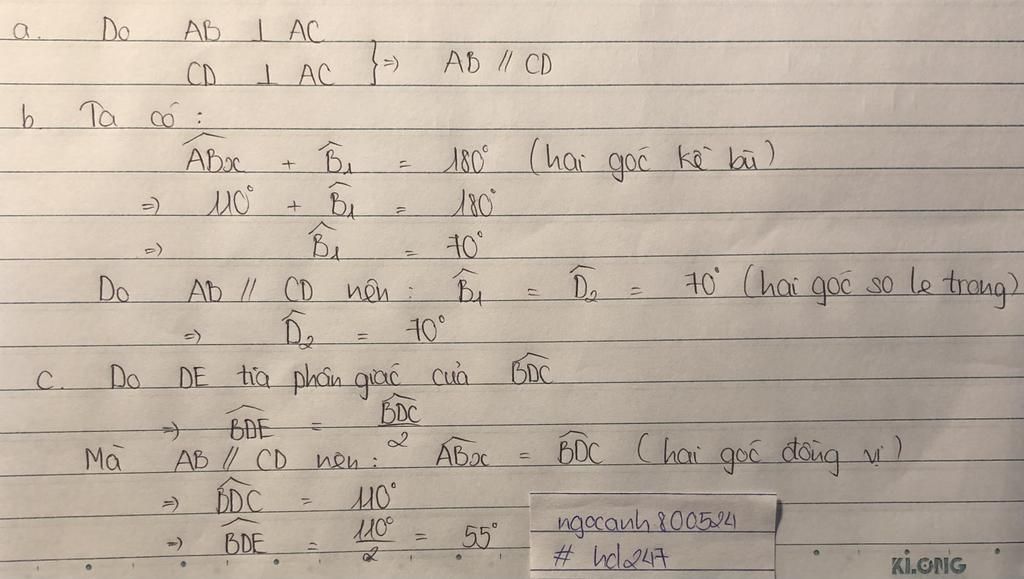 a. Do AB ⊥ AC
CD ⊥ AC } ⇒ AB // CD
b. Ta có:
$\widehat{ABx}$ + $\widehat{B}_1$ = 180° (hai góc kề bù)
⇒ 110° + $\widehat{B}_1$ = 180°
⇒ $\widehat{B}_1$ = 70°
Do AB // CD nên: $\widehat{B}_1$ = $\widehat{D}_2$ = 70° (hai góc so le trong)
⇒ $\widehat{D}_2$ = 70°
c. Do DE tia phân giác của $\widehat{BDC}$
⇒ $\widehat{BDE}$ = $\frac{\widehat{BDC}}{2}$
Mà AB // CD nên: $\widehat{ABx}$ = $\widehat{BDC}$ (hai góc đồng vị)
⇒ $\widehat{BDC}$ = 110°
⇒ $\widehat{BDE}$ = $\frac{110°}{2}$ = 55°
ngocanh800524
# hd247
KI.ONG